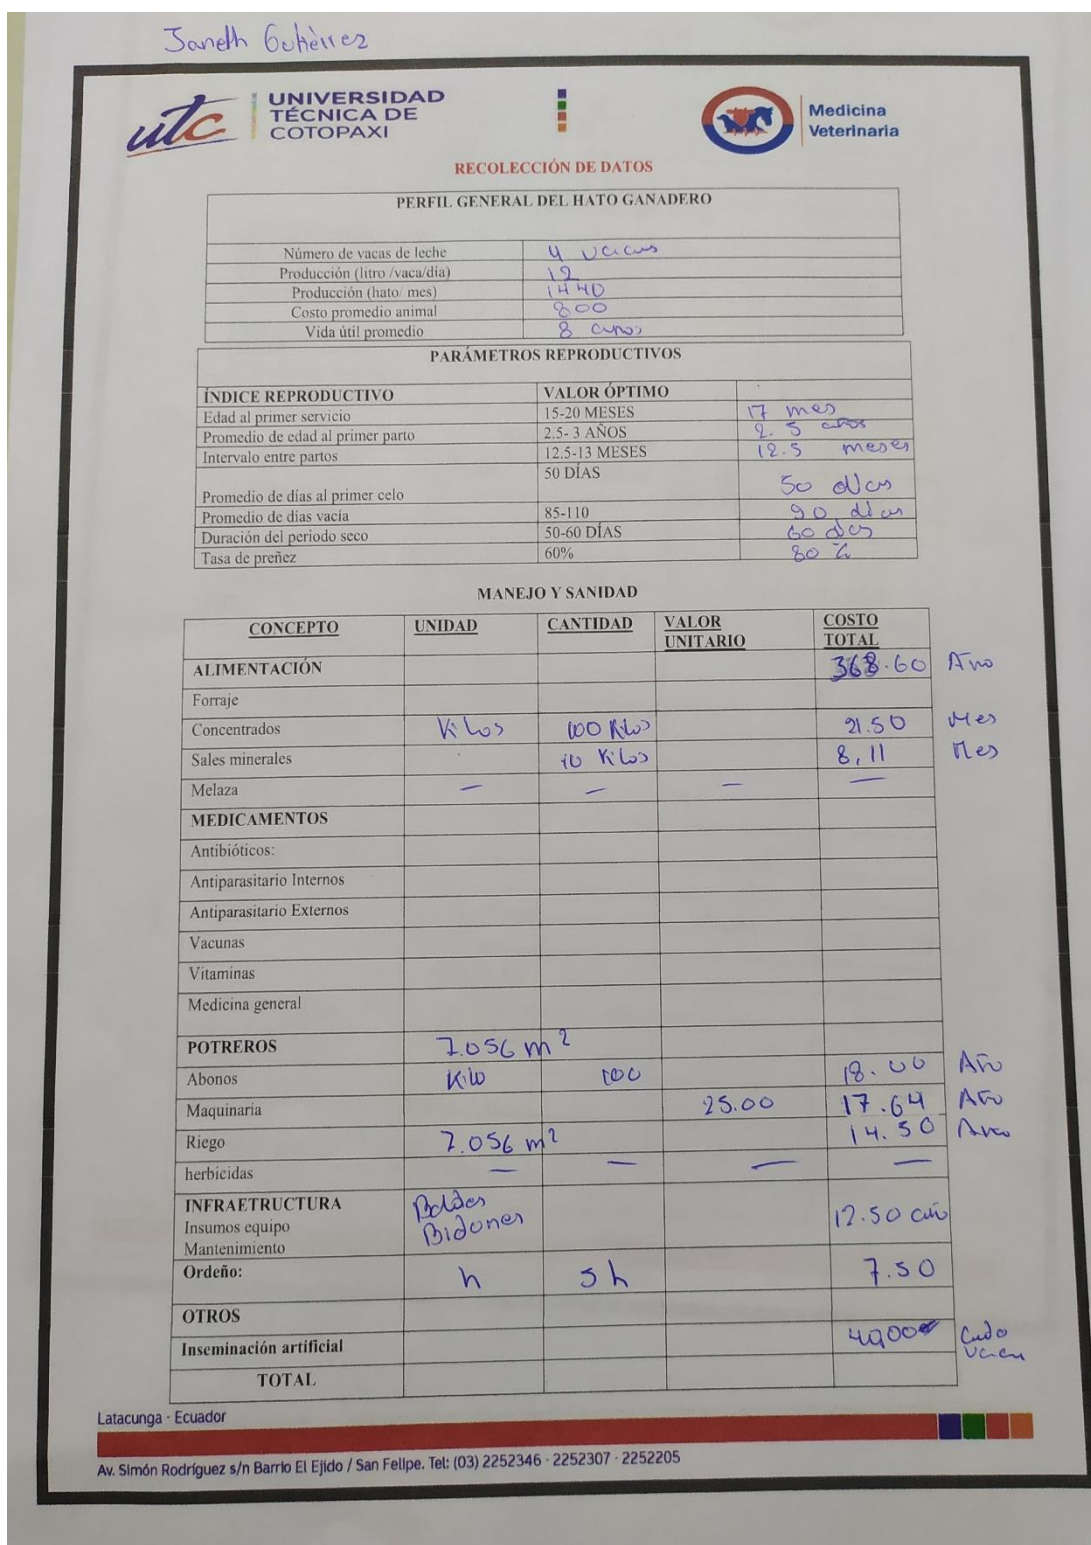 Janeth Gutièrrez
utc UNIVERSIDAD TÉCNICA DE COTOPAXI
Medicina Veterinaria
RECOLECCIÓN DE DATOS
PERFIL GENERAL DEL HATO GANADERO
Número de vacas de leche 4 vacas
Producción (litro /vaca/día) 12
Producción (hato/ mes) 1440
Costo promedio animal 800
Vida útil promedio 8 anos
PARÁMETROS REPRODUCTIVOS
ÍNDICE REPRODUCTIVO VALOR ÓPTIMO
Edad al primer servicio 15-20 MESES 17 mes
Promedio de edad al primer parto 2.5- 3 AÑOS 2.5 años
Intervalo entre partos 12.5-13 MESES 12.5 meses
Promedio de días al primer celo 50 DÍAS 50 dias
Promedio de días vacía 85-110 90 dias
Duración del periodo seco 50-60 DÍAS 60 dias
Tasa de preñez 60% 80 %
MANEJO Y SANIDAD
CONCEPTO UNIDAD CANTIDAD VALOR UNITARIO COSTO TOTAL
ALIMENTACIÓN 368.60 Año
Forraje
Concentrados Kilos 100 Kilos 21.50 Mes
Sales minerales 10 Kilos 8,11 Mes
Melaza — — — —
MEDICAMENTOS
Antibióticos:
Antiparasitario Internos
Antiparasitario Externos
Vacunas
Vitaminas
Medicina general
POTREROS 7.056 m²
Abonos Kilo 100 18.00 Año
Maquinaria 25.00 17.64 Año
Riego 7.056 m² 14.50
herbicidas — — — —
INFRAETRUCTURA Baldes
Insumos equipo Bidones 12.50 año
Mantenimiento
Ordeño: h 5 h 7.50
OTROS
Inseminación artificial Cada vaca
TOTAL
Latacunga - Ecuador
Av. Simón Rodríguez s/n Barrio El Ejido / San Felipe. Tel: (03) 2252346 - 2252307 - 2252205